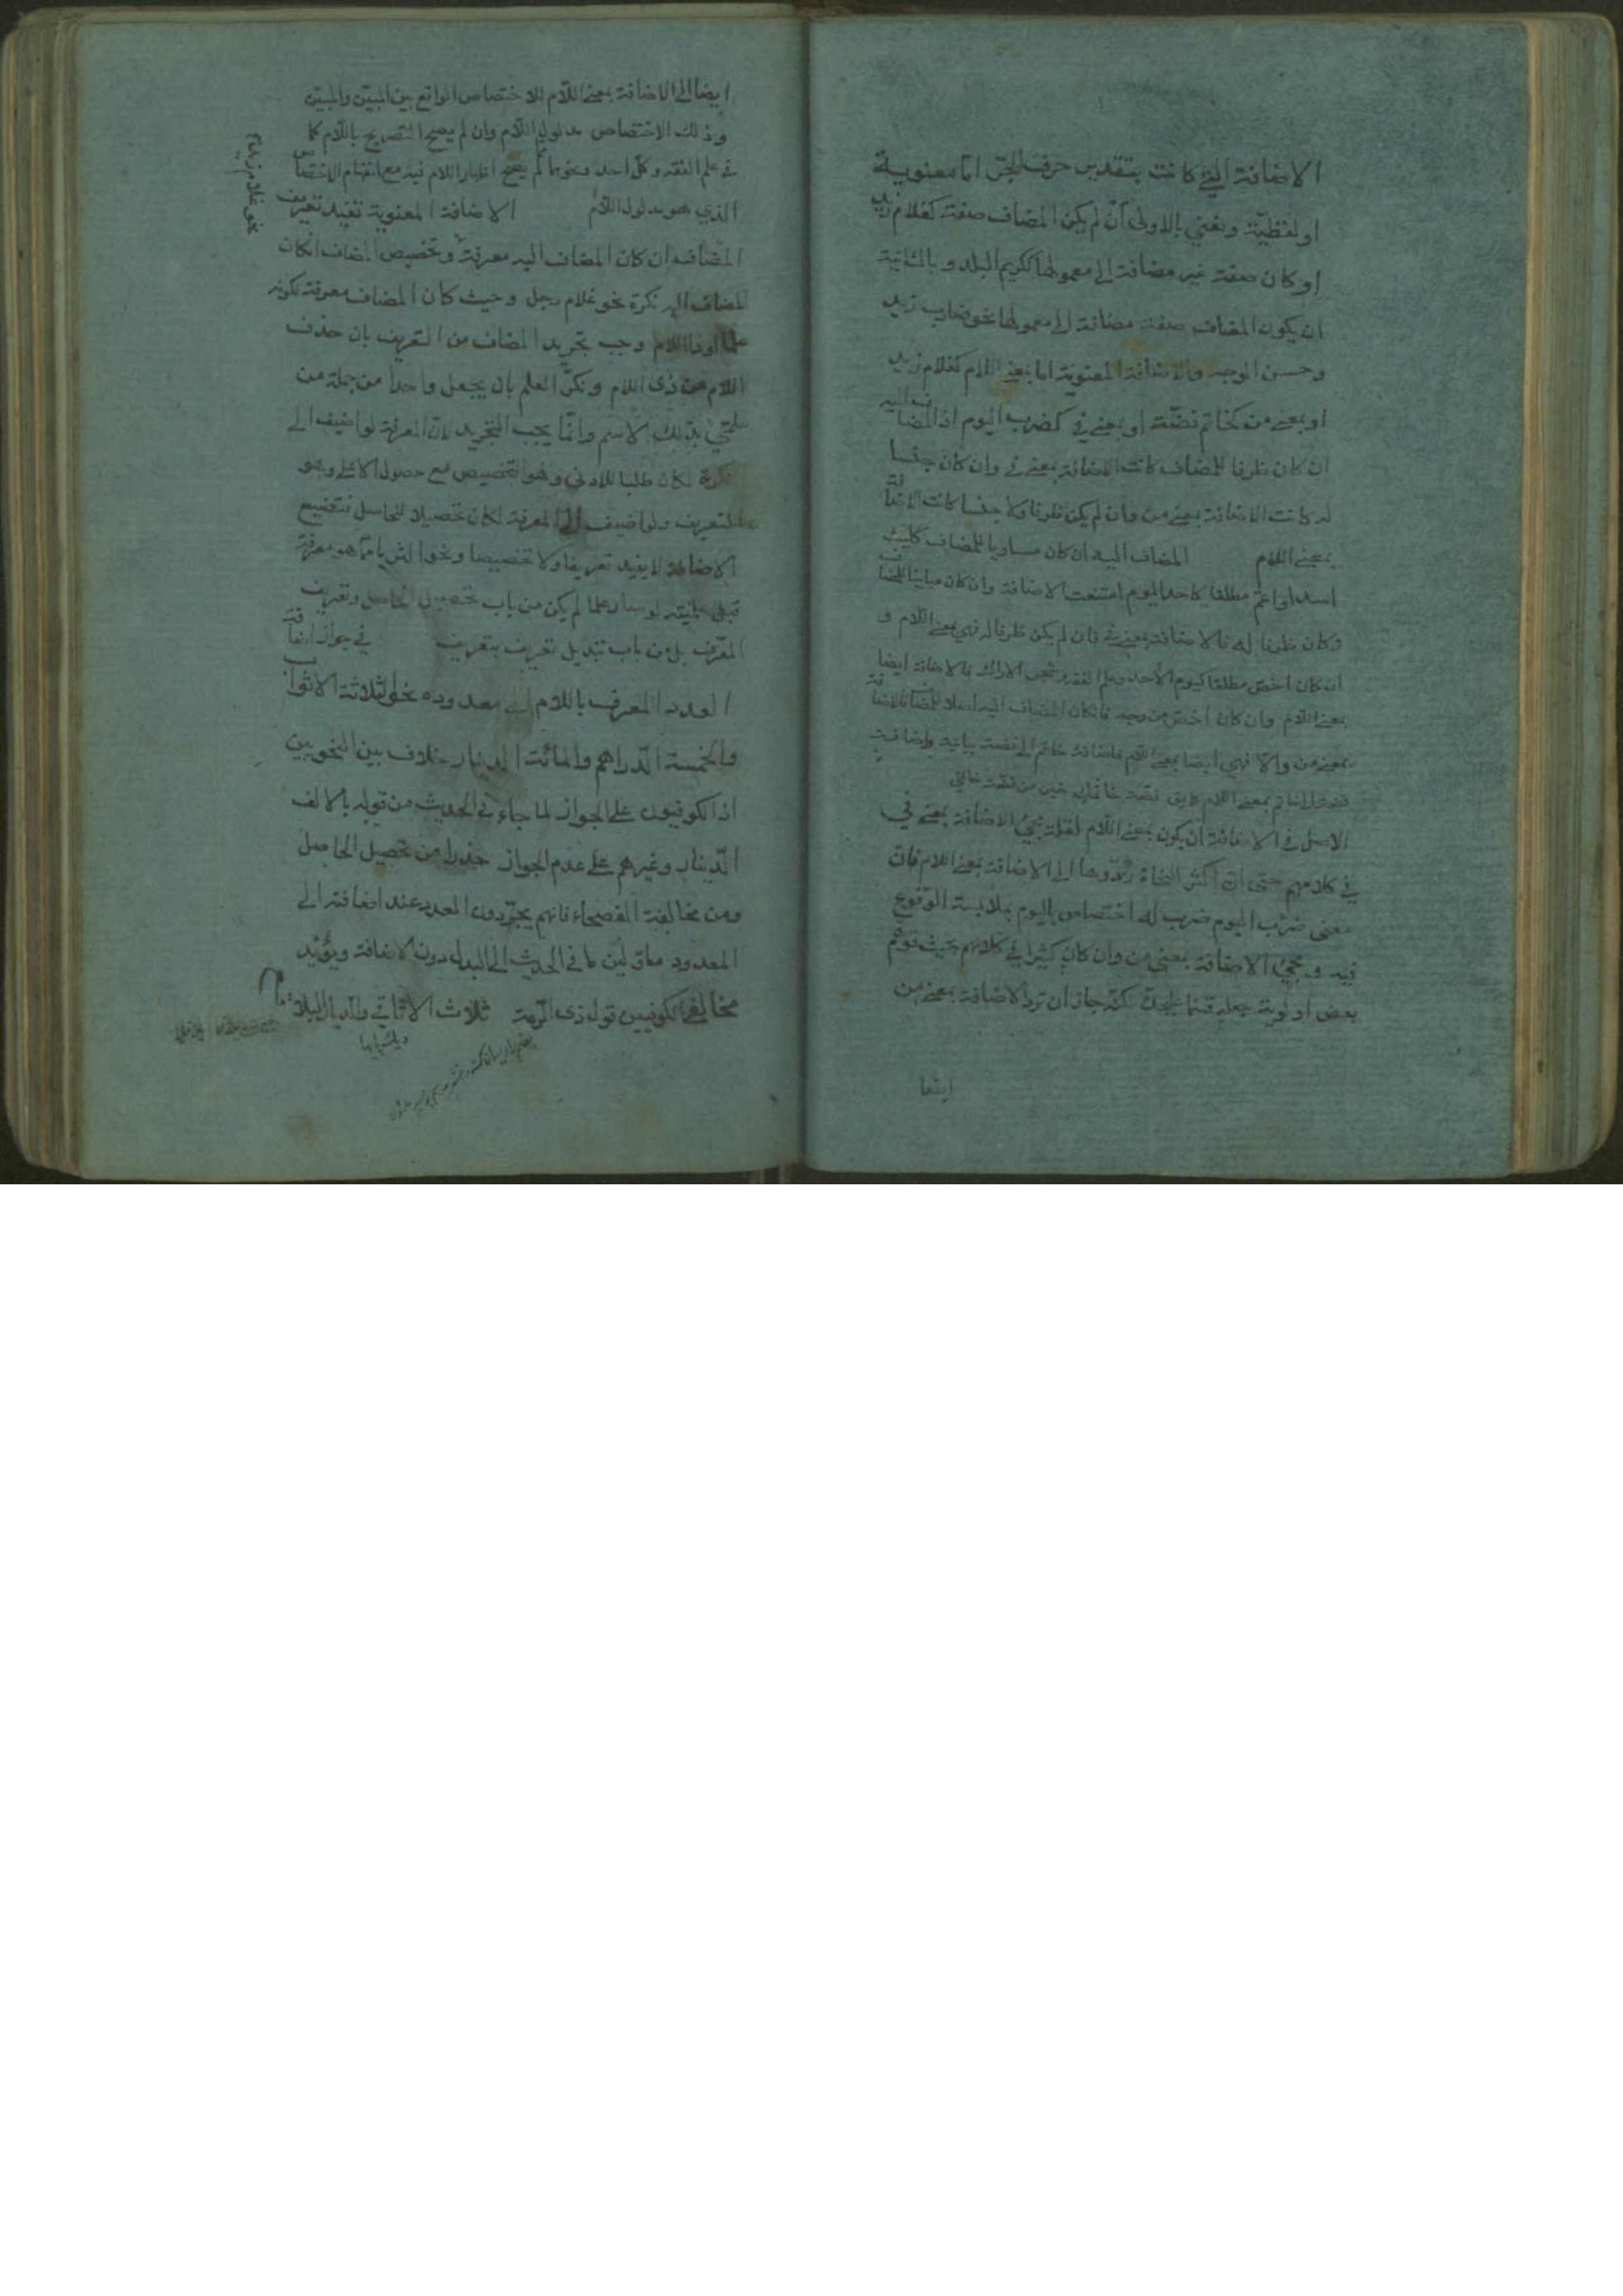 الاضافة التي كانت بتقدير حرف الجرّ امّا معنوية
او لفظيّة ونعني بالاولى أنْ لم يكن المضاف صفة كغلام زيد
او كان صفة غير مضافة الى معمولها ككريم البلد وبالثانية
ان يكون المضاف صفة مضافة الى معمولها نحو ضارب زيد
وحسن الوجه والاضافة المعنوية اما بمعنى اللام كغلام زيد
او بمعنى من كخاتم فضّة او بمعنى في كضرب اليوم اذ المضاف اليه
ان كان ظرفا للمضاف كانت الاضافة بمعنى في وان كان جنسا
له كانت الاضافة بمعنى من وان لم يكن ظرفا ولا جنسا كانت الاضافة
بمعنى اللام المضاف اليه ان كان مساويا للمضاف كليث
اسد او اعمّ مطلقا كاحد اليوم امتنعت الاضافة وان كان مباينا للمضاف
وكان ظرفا له فالاضافة بمعنى في فان لم يكن ظرفا له فهي بمعنى اللام و
ان كان اخصّ مطلقا كيوم الاحد وعلم الفقه وشجر الاراك فالاضافة ايضا
بمعنى اللام وان كان اخصّ من وجه فان كان المضاف اليه اصلا للمضاف فالاضافة
بمعنى من والّا فهي ايضا بمعنى اللام فاضافة خاتم الى فضة بيانية واضافة
فضة الى خاتم بمعنى اللام كما يق فضة خاتمك خير من فضة خاتمي
الاصل في الاضافة ان يكون بمعنى اللام لقلة مجئ الاضافة بمعنى في
في كلامهم حتى انّ اكثر النحاة ردّوها الى الاضافة بمعنى اللام فانّ
معنى ضرْب اليوم ضرب له اختصاص باليوم بملابسة الوقوع
فيه ومجئ الاضافة بمعنى من وان كان كثيرا في كلامهم بحيث توهم
بعض اولوية جعله قسما علىحدّ لكنّه جاز ان تردّ الاضافة بمعنى من
ايضا
ايضا الى الاضافة بمعنى اللّام للاختصاص الواقع بين المبيّن والمبيّن
وذلك الاختصاص مدلول اللّام وان لم يصح التصريح باللّام كما
في علم الفقه وكلّ احد ونحوهما ممّ لم يصحّ اظهار اللام فيه مع انفهام الاختصاص
الذي هو مدلول اللّام الاضافة المعنوية تفيد تعريف
نحو غلام زيد
المضاف ان كان المضاف اليه معرفة وتخصيص المضاف ان كان
المضاف اليه نكرة نحو غلام رجل وحيث كان المضاف معرفة لكونه
علما او ذا اللام وجب تجريد المضاف من التعريف بان حذف
اللام من ذي اللام ونكّر العلم بان يجعل واحدا من جملة من
سمّي بذلك الاسم وانّما يجب التجريد لانّ المعرفة لو اضيف الى
نكرة لكان طلبا للادنى وهو التخصيص مع حصول الاعلى وهو
التعريف ولو اضيف الى المعرفة لكان تحصيلا للحاصل فتضييع
الاضافة لا يفيد تعريفا ولا تخصيصا ونحو الثريا ممّا هو معرفة
قبل علميّته لو صار علما لم يكن من باب تحصيل الحاصل وتعريف
المعرّف بل من باب تبديل تعريف بتعريف في جواز اضافة
العدد المعرف باللام الى معدوده نحو الثلاثة الاثواب
والخمسة الدّراهم والمائة الدينار خلاف بين النحويين
اذ الكوفيون على الجواز لما جاء في الحديث من قوله بالالف
الدّينار وغيرهم على عدم الجواز حذرا من تحصيل الحاصل
ومن مخالفة الفصحاء فانهم يجرّدون العدد عند اضافته الى
المعدود ما في الحديث الى البدل دون الاضافة ويؤيّد
مخالفي الكوفيين قول ذي الرّمة ثلاث الاثافي والديار البلاقع